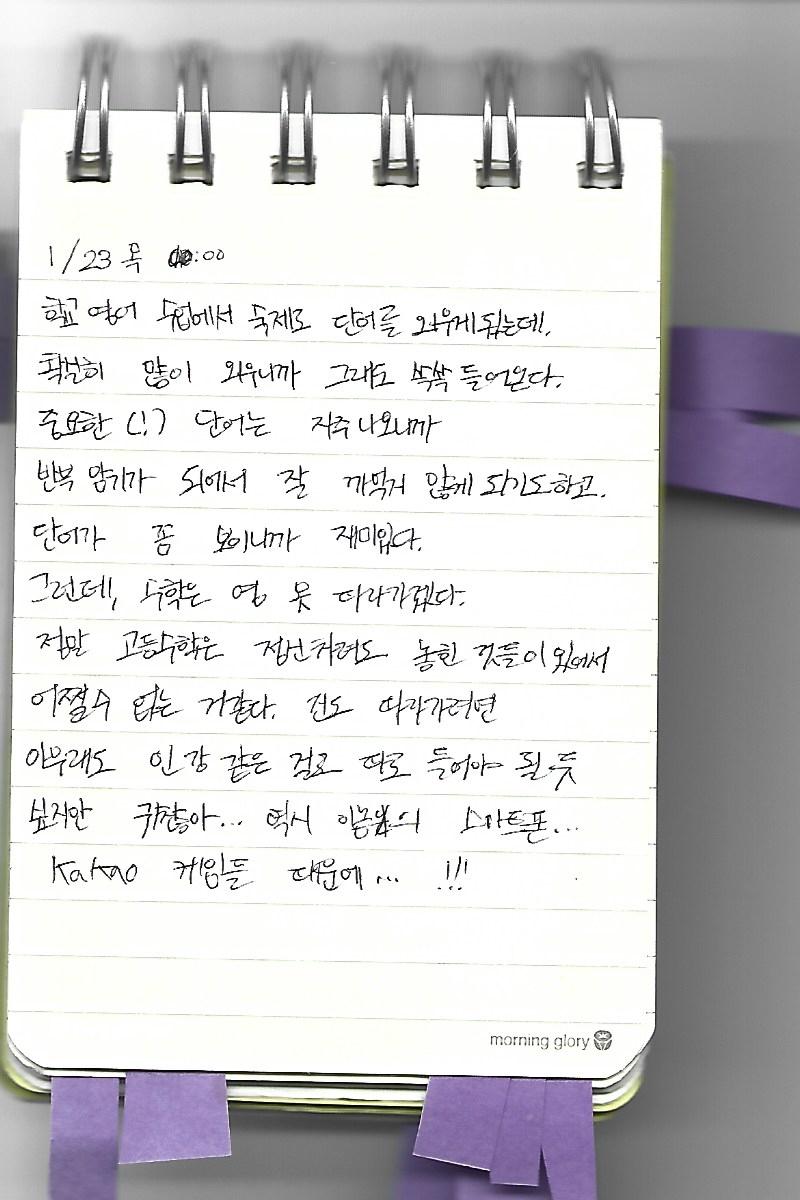 1/23 목 :00
학교 영어 수업에서 숙제로 단어를 외우게 됐는데,
확실히 많이 외우니까 그래도 쏙쏙 들어온다.
중요한 (!?) 단어는 자주 나오니까
반복 암기가 되에서 잘 까먹지 않게 되기도하고.
단어가 좀 보이니까 재미있다.
그런데!, 수학은 영 못 따라가겠다.
정말 고등수학은 접신하려도 농힌 것들이 있에서
어쩔수 없는 거같다. 진도 따라가려면
아무래도 인강 같은 걸로 따로 들어야 될 듯
싶지만 귀찮아... 역시 의 스마트폰...
Kakao 게임들 때문에... !!!
morning glory